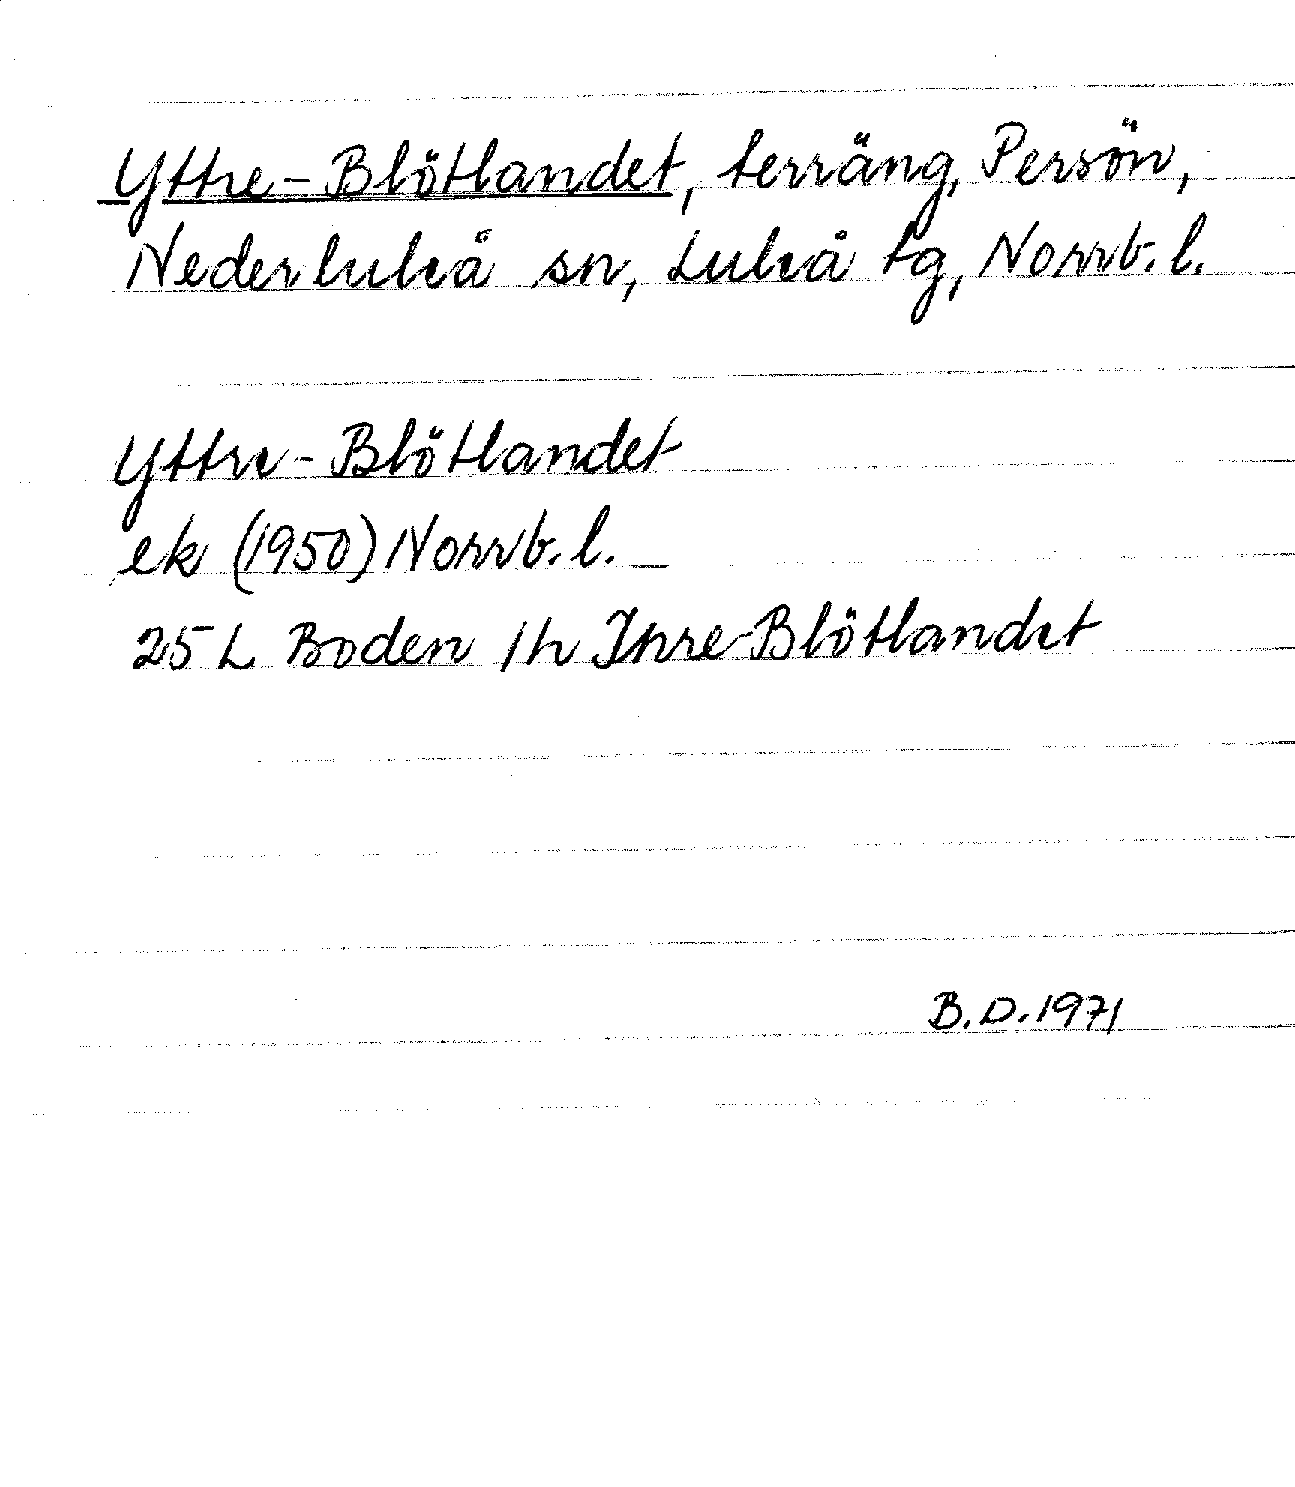 Yttre-Blötlandet, terräng, Persön,
Nederluleå sn, Luleå tg, Norrb. l.
Yttre-Blötlandet
ek (1950) Norrb. l.
25 L Boden 1h Ihre-Blötlandet
B.D. 1971